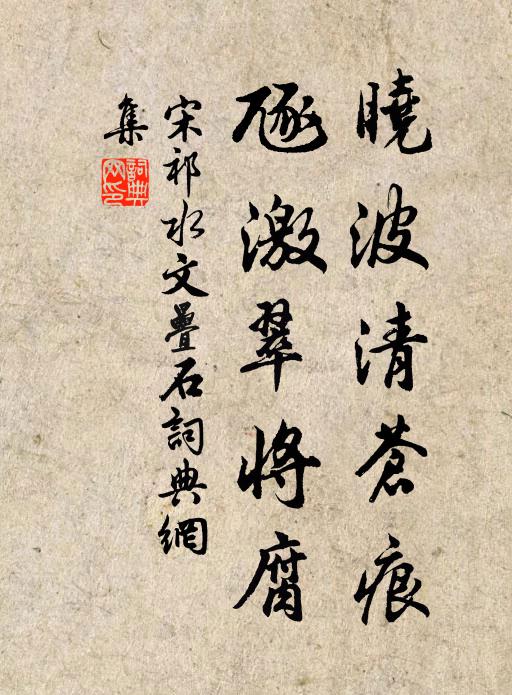 曉波清蒼痕
豗激翠將腐
宋祁水文疊石詞典網
集
詞典网印